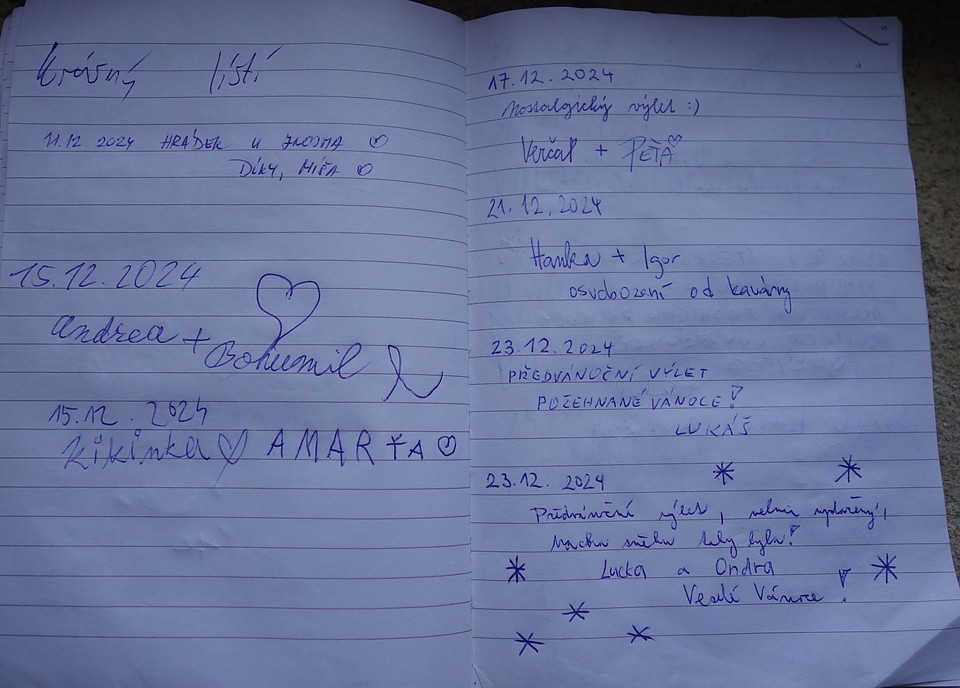 Krásný lístí
11.12 2024 HRÁDEK U ZNOJMA
DÍKY, MÍŠA
15.12.2024
Andrea +
Bohumil
15.12. 2024
Kikinka AMARŤA
17.12.2024
Nostalgický výlet :)
Verčal + PEŤA
21.12.2024
Hanka + Igor
osvobození od kavárny
23.12.2024
PŘEDVÁNOČNÍ VÝLET
POŽEHNANÉ VÁNOCE!
LUKÁŠ
23.12. 2024
Předvánoční výlet, velmi vydařený,
trocha sněhu taky byla!
Lucka a Ondra
Veselé Vánoce!